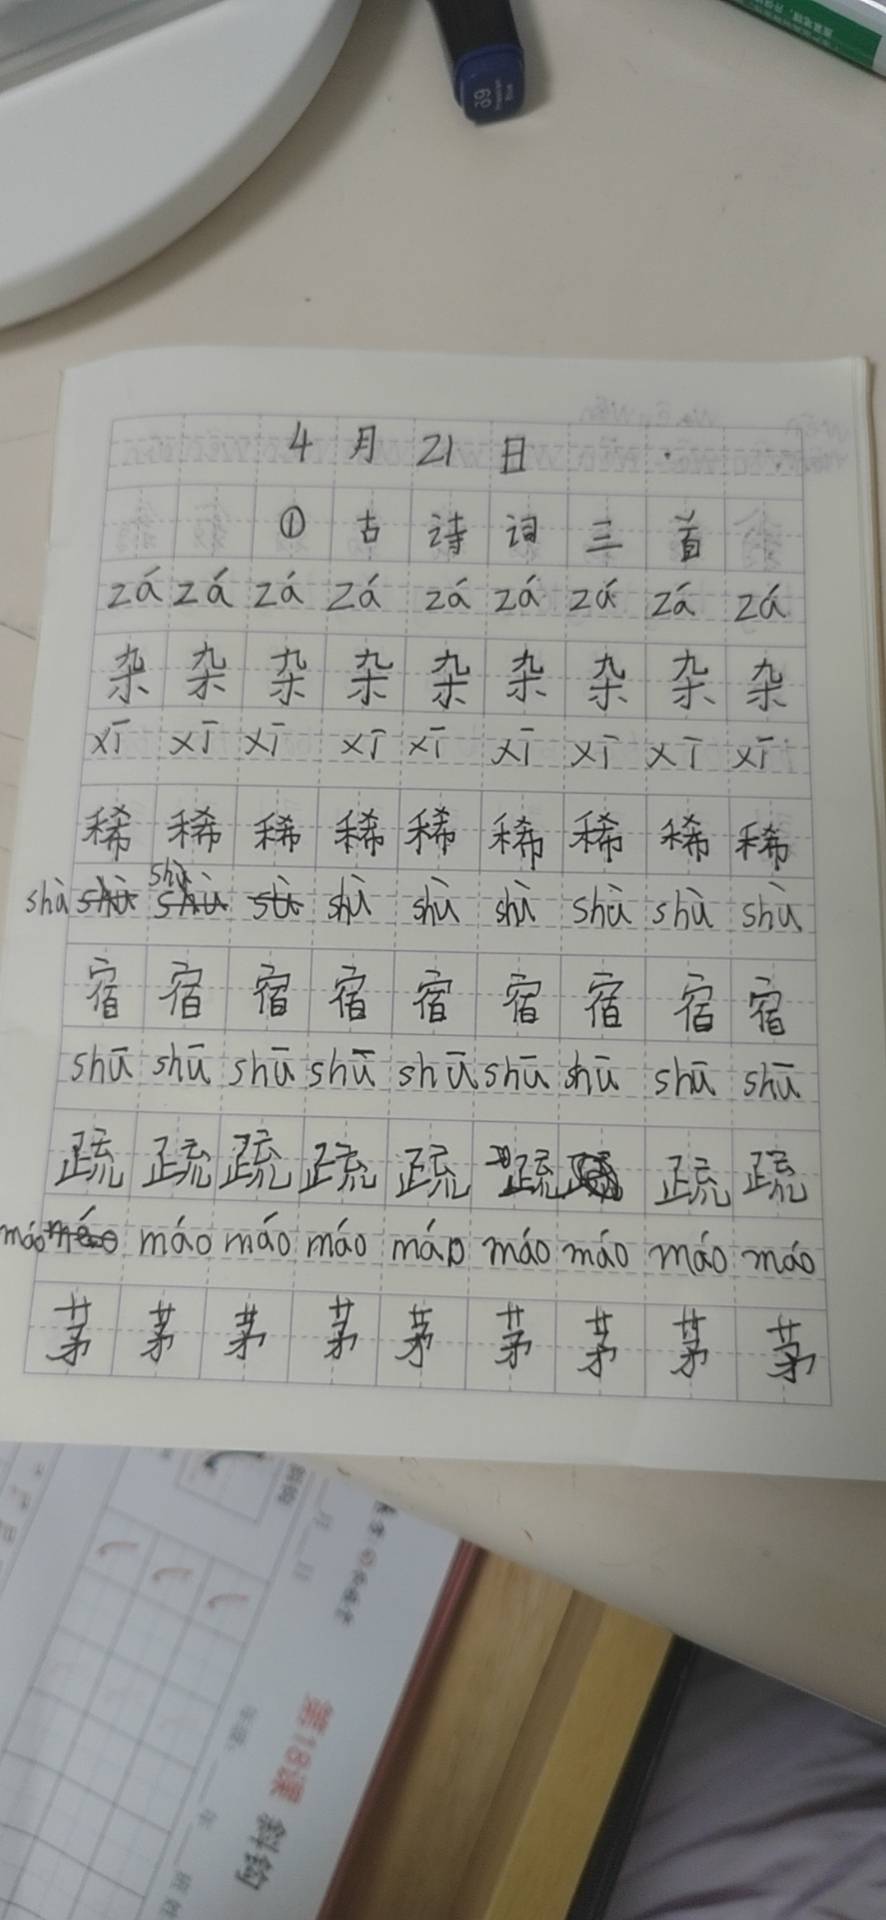 4月21日
①古诗词三首
zá zá zá zá zá zá zá zá zá
杂 杂 杂 杂 杂 杂 杂 杂 杂
xī xī xī xī xī xī xī xī xī
稀 稀 稀 稀 稀 稀 稀 稀 稀
shù
shù shù shù sù shù shù shù shù shù shù
宿 宿 宿 宿 宿 宿 宿 宿 宿
shū shū shū shū shū shū shū shū shū
疏 疏 疏 疏 疏 疏 疏 疏
máo máo máo máo máo máo máo máo máo
茅 茅 茅 茅 茅 茅 茅 茅 茅
第18课 斜钩
69